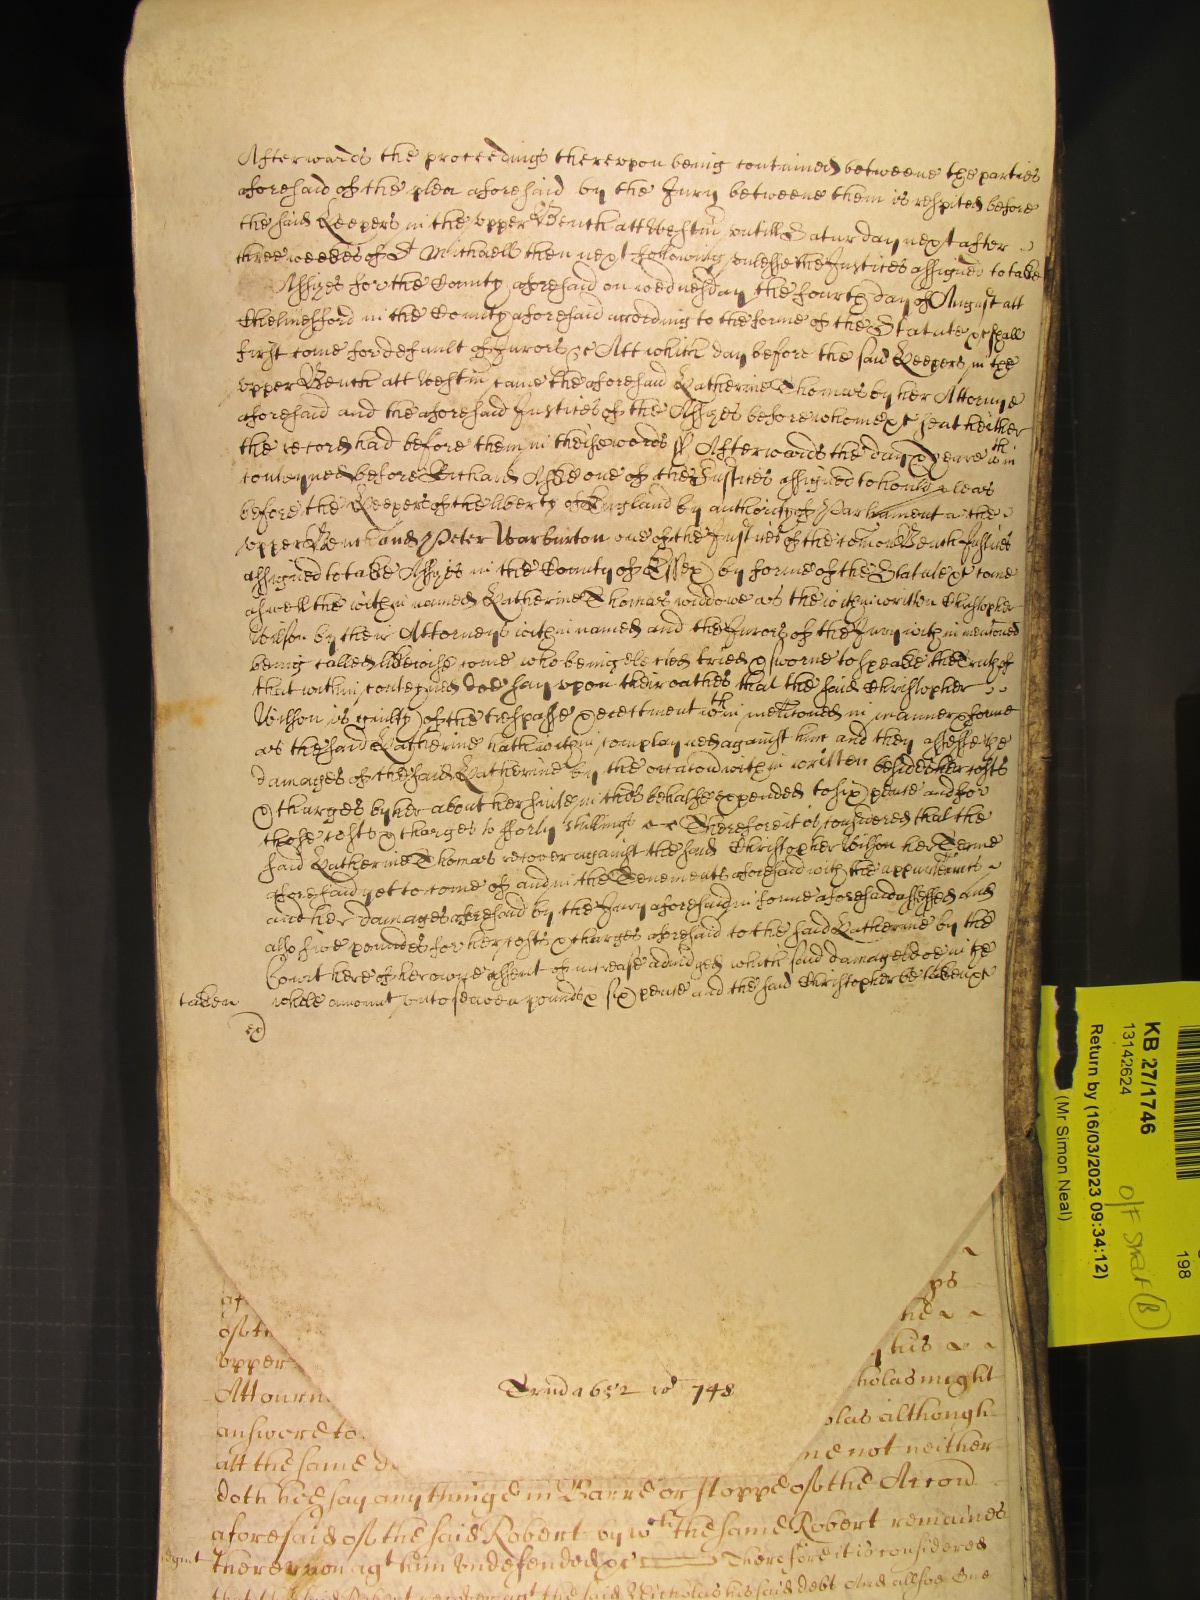 Afterwards the proceedings thereupon being continued betweene the parties
aforesaid of the plea aforesaid by the Jury betweene them is respited before
the said Keepers in the upper Bench att Westm untill Saturday next after
three weekes of St Michaell then next following unlesse the Justices assigned to take
Assizes for the County aforesaid on wednesday the fourth day of August att
Chelmesford in the County aforesaid according to the forme of the Statute &c shall
first come for default of Jurors &c Att which day before the said Keepers in the
upper Bench att Westm came the aforesaid Katherine Thomas by her Attorney
aforesaid and the aforesaid Justices of the Assizes before whome &c sent hither
the record had before them in theise words ss Afterwards the day & yeare wthin
conteyned before Richard Aske one of the Justices assigned to hould pleas
before the Keepers of the liberty of England by authority of Parliament in the
upper Bench and Peter Warburton one of the Justices of the comon Bench Justices
assigned to take Assizes in the County of Essex by forme of the Statute &c come
aswell the within named Katherine Thomas widdowe as the within written Christopher
Wilson by their Attorneys within named and the Jurors of the Jury within mentioned
being called likewise come who being elected tried & sworne to speake the truth of
that within conteyned doe say upon their oathes that the said Christopher
Wilson is guilty of the trespasse & ejectment wthin mentioned in manner & forme
as the said Katherine hath within complayned against him and they assesse the
damages of the said Katherine by the occasion within written besides her costs
& charges by her about her suite in this behalfe expended to six pence and for
those costs & charges to forty shillings Therefore it is considered that the
said Katherine Thomas recover against the said Christopher Wilson her Terme
aforesaid yet to come of and in the Tenements aforesaid with the appurtenncs
and her damages aforesaid by the Jury aforesaid in forme aforesaid assessed and
also five poundes for her costs & charges aforesaid to the said Katherine by the
Court here of her owne assent of increase adiudged which said damages doe in the
whole amount unto seaven pounds & six pence and the said Christopher be taken &c
taken
ex
Trin 1652 ro 748
af
of th
upper
Attourn
answere to
att the same d
ps
the
tus
holas might
olas although
me not neither
doth hee say any thinge in Barre or stoppe of the Accon
aforesaid of the said Robert by wch the same Robert remaines
thereupon agt him undefended &c Therefore it is considered
dgmt
that the said Robert recover agt the said Nicholas his said debt And allsoe One
KB 27/1746
13142624
Return by (16/03/2023 09:34:12)
(Mr Simon Neal)
198
O/F
B